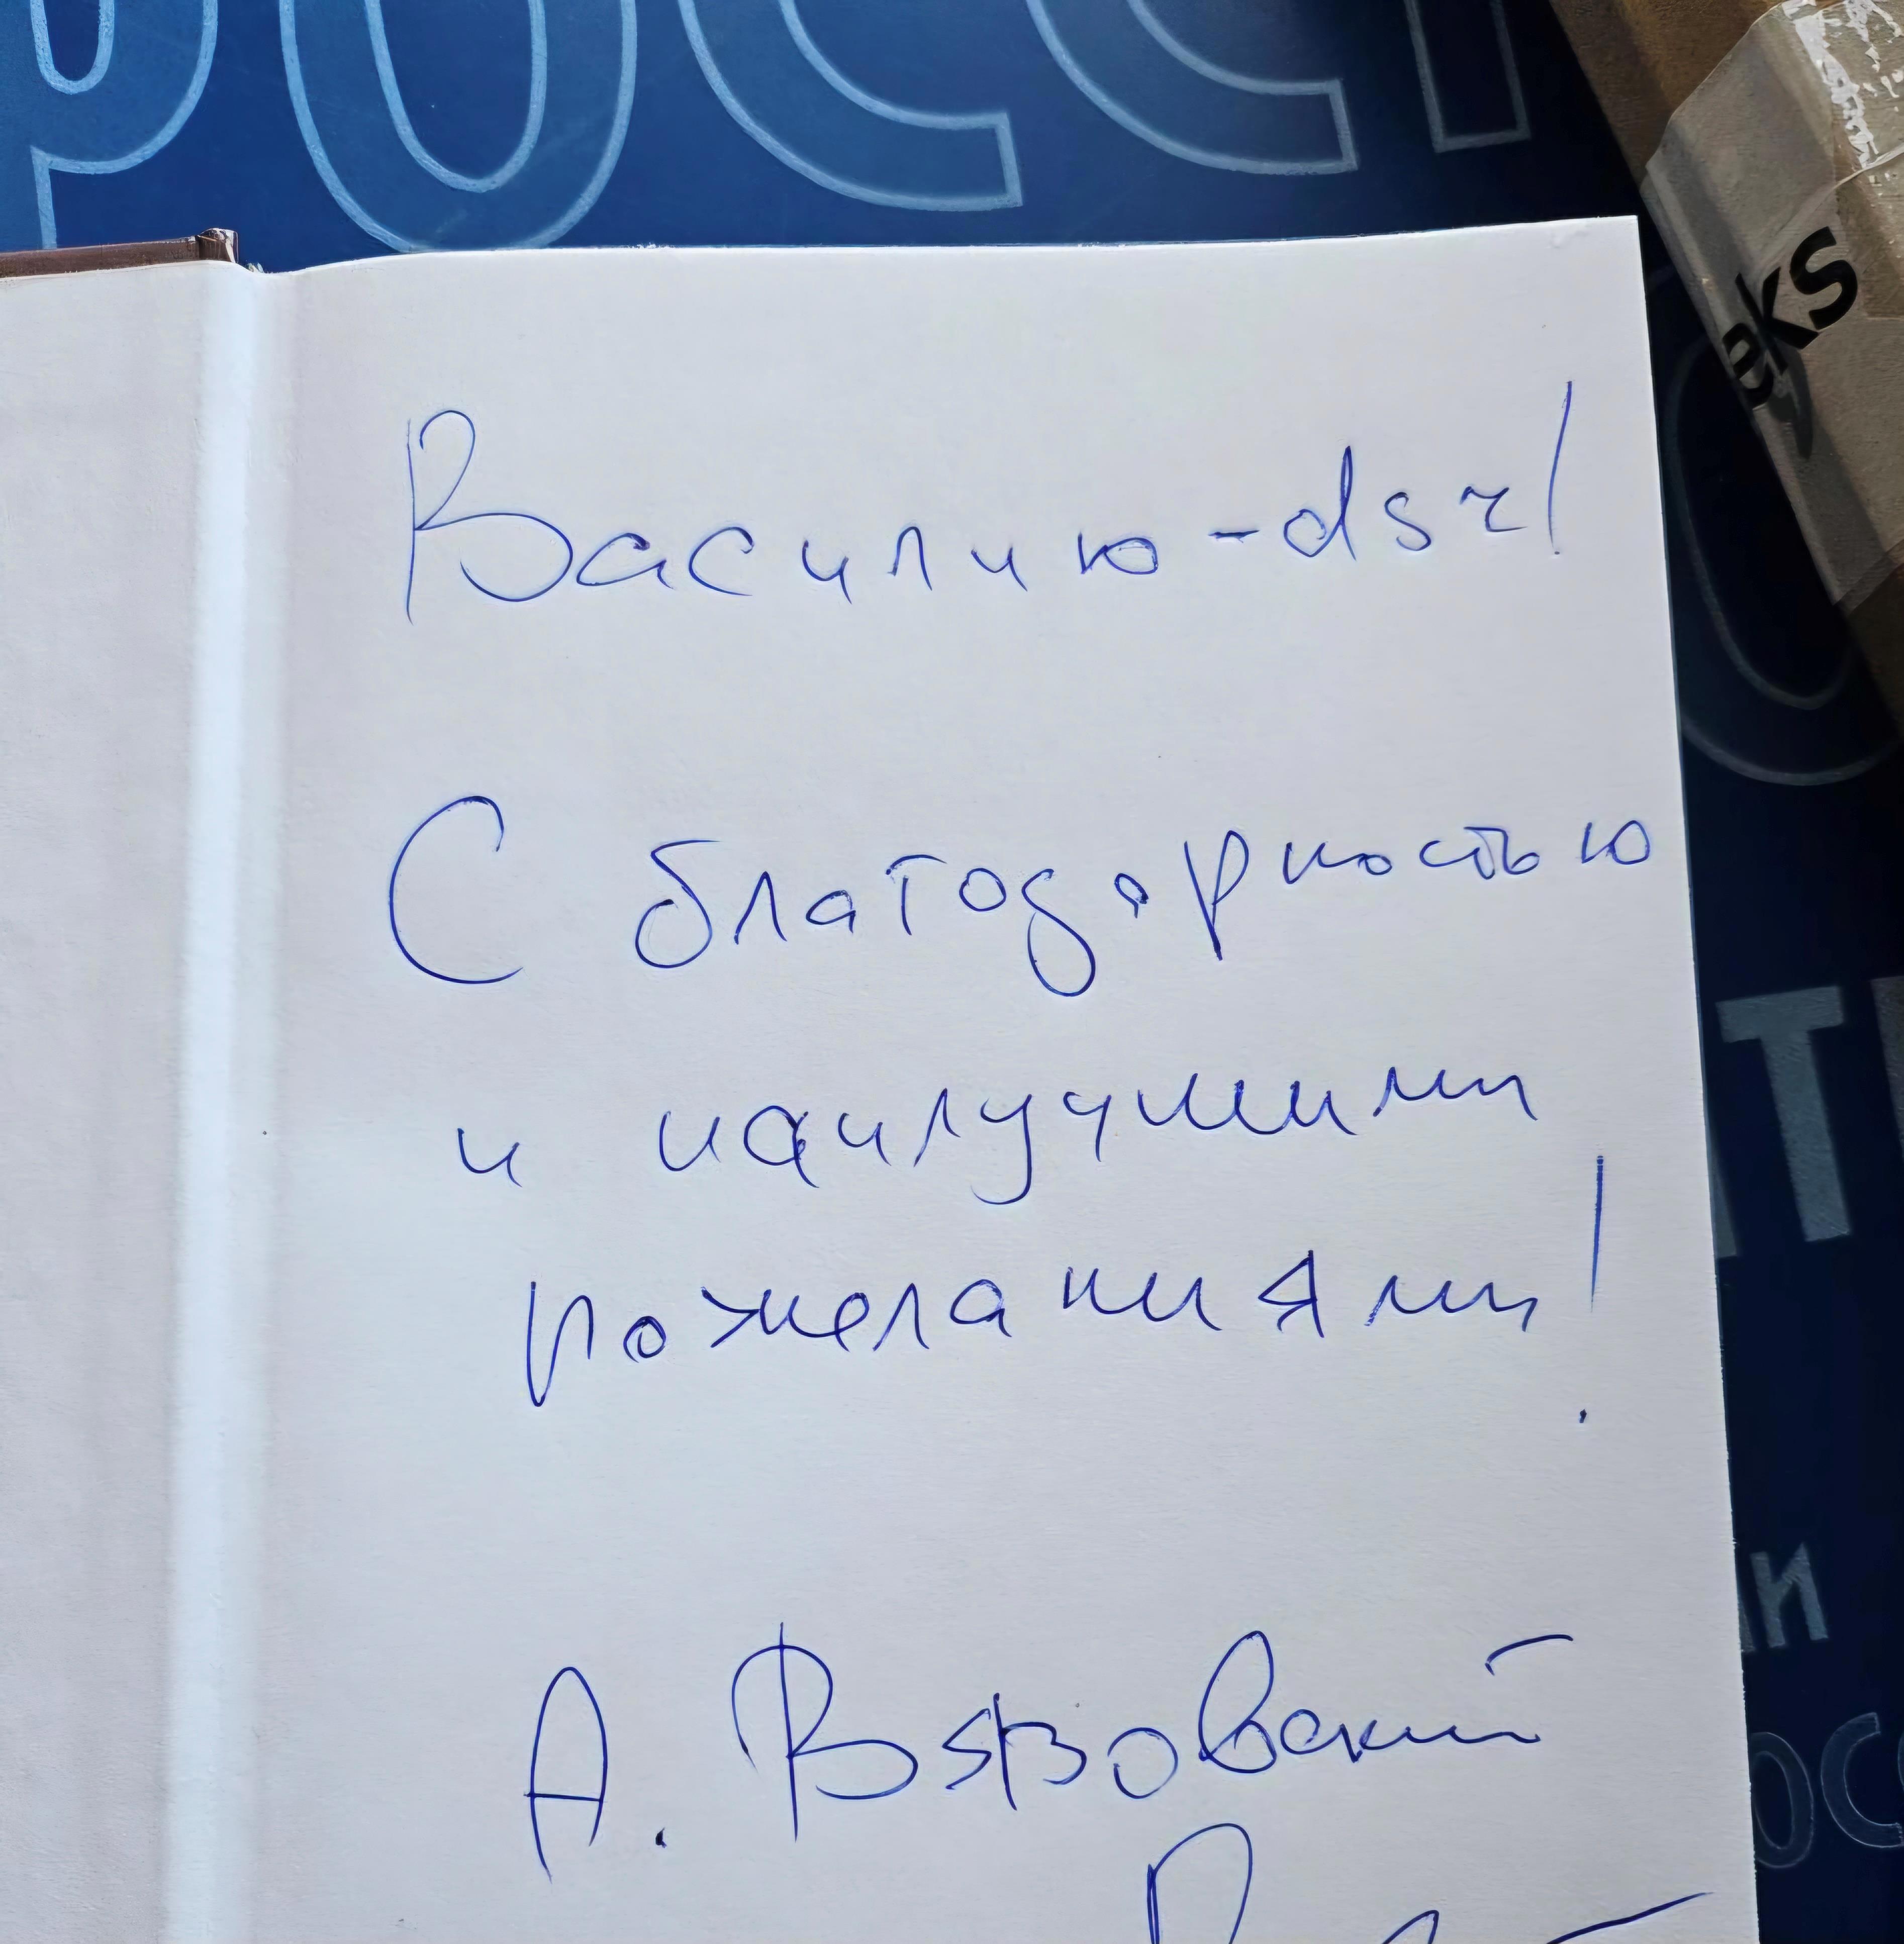 РОССИ
eks
Василию-dsr!
С благодарностью
и наилучшими
пожеланиями!
А. Вязовский